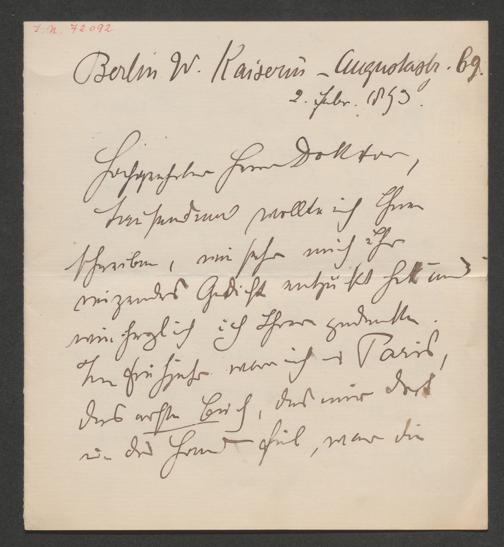 I. N. 72092
Berlin W. Kaiserin-Augustastr. 69.
2. Febr. 1893.
Hochgeehrter Herr Doktor,
Tausendmal wollte ich Ihnen
schreiben, wie sehr mich Ihr
reizendes Gedicht entzückt hat und
wie herzlich ich Ihrer gedenke.
Im Frühjahr war ich in Paris,
das erste Buch, das mir dort
in die Hand fiel, war die